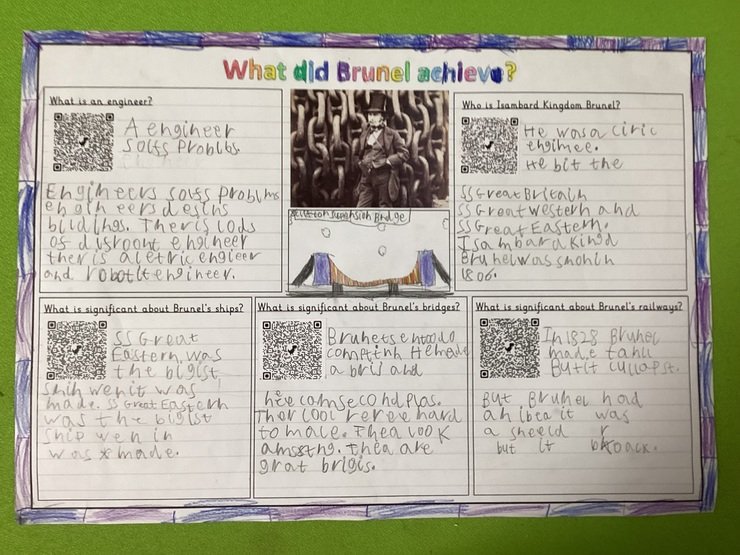 What did Brunel achieve?
What is an engineer?
A engineer
solfs Problbs.
Engineers solfs Problms
engin eers desins
bildings. Ther is lods
of
engineer
ther is a letric engieer
and robotit engineer.
Clifton Suspension Bridge
Who is Isambard Kingdom Brunel?
He was a ciric
enginee.
He bit the
SS Great Britain
SS Great western and
SS Great Eastern.
Isambara King d
Brunel was
1806.
What is significant about Brunel's ships?
SS Great
Eastern, was
the bigist
ship wen it was
made. SS Great Eastern
was the bigist
ship wen in
was made.
What is significant about Brunel's bridges?
Brunel
a
made
a brij and
he came second plas.
Ther
hard
to mace. Thea look
amasing. thea are
grat brigis.
What is significant about Brunel's railways?
In 1828 Brunel
made
But it cullapst.
But Brunel had
an idea it was
a sheeld
but it